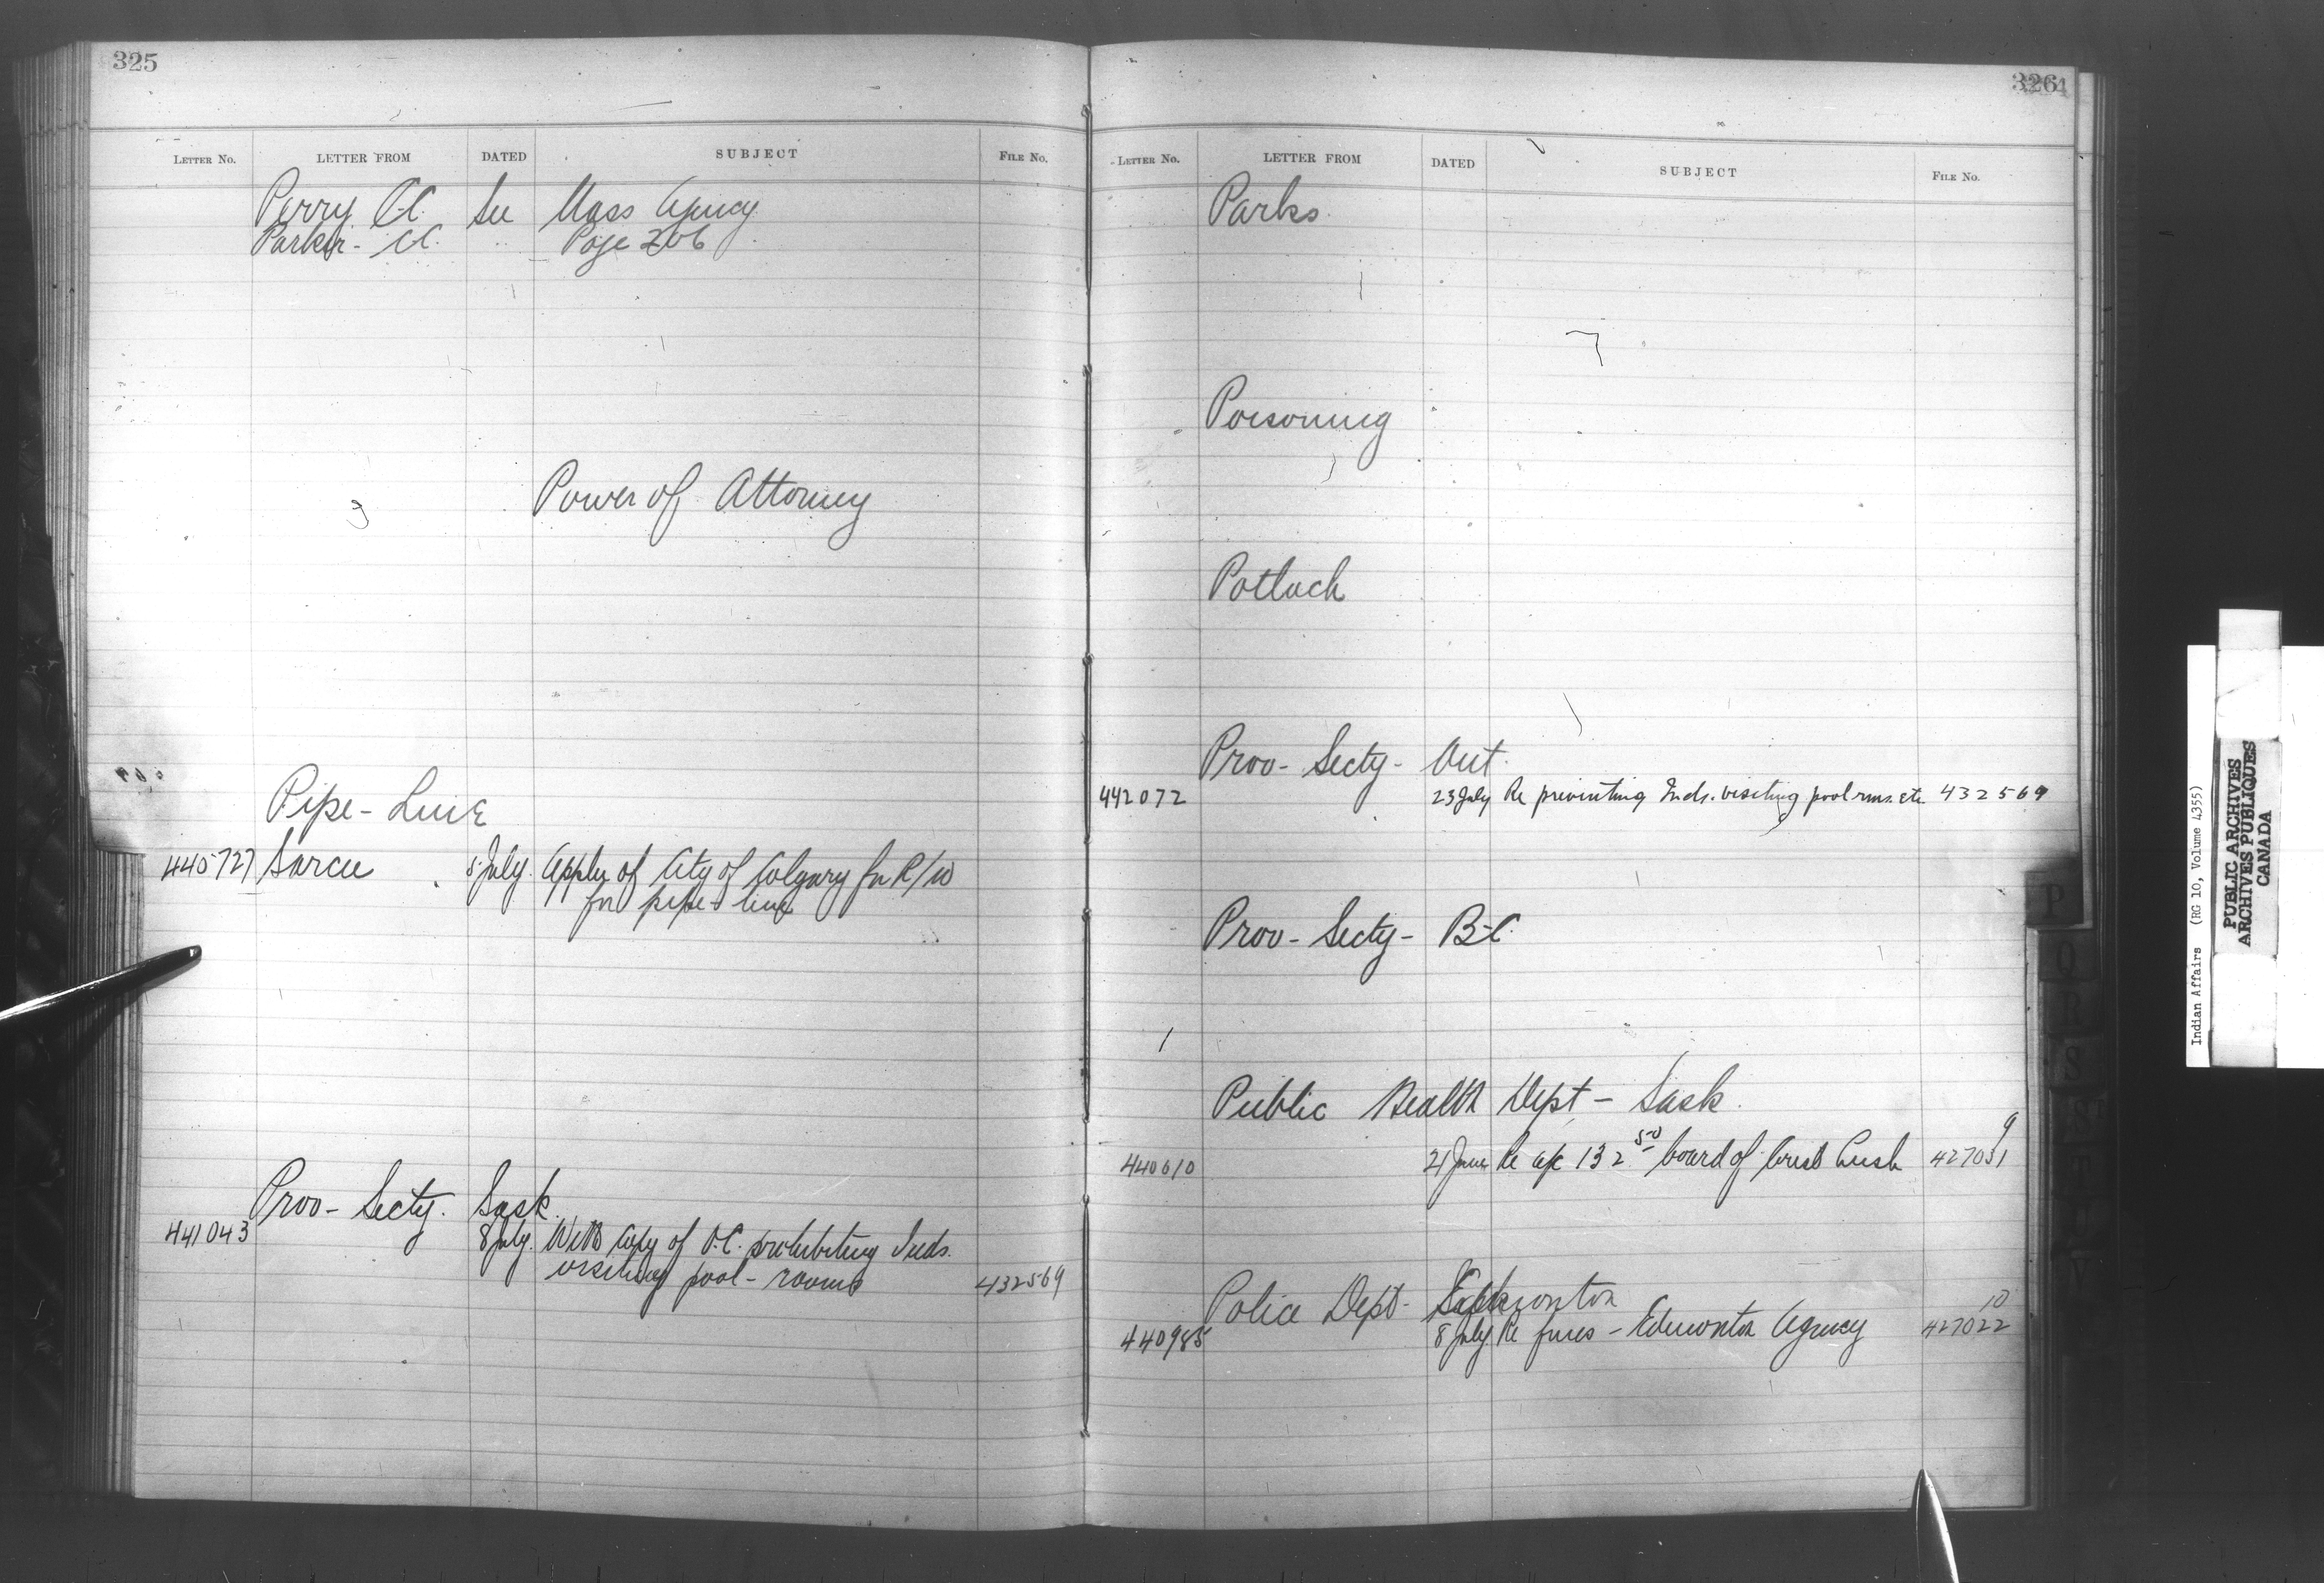 325
LETTER No. LETTER FROM DATED SUBJECT FILE No.
Perry C.C. See Mass Agency
Parker - C.C. " Page 206
Power of Attorney
Pipe - Line
440727 Sarcee 8 July. Appln of City of Calgary for R/W
for pipe-line
Prov - Secty. Sask.
441043 8 July. With copy of O.C. prohibiting Inds.
visiting pool-rooms 432569
326
LETTER No. LETTER FROM DATED SUBJECT FILE No.
Parks
Poisoning
Potlach
Prov - Secty - Ont.
442072 23 July Re preventing Inds. visiting pool-rms. etc 432569
Prov - Secty - B-C.
Public Health Dept - Sask.
9
440610 21 June Re a/c 132 50 board of 427031
Police Dept - Edmonton
10
440985 8 July. Re fines - Edmonton Agency 427022
P
Q
R
S
T
V
Indian Affairs (RG 10, Volume 4355)
PUBLIC ARCHIVES
ARCHIVES PUBLIQUES
CANADA